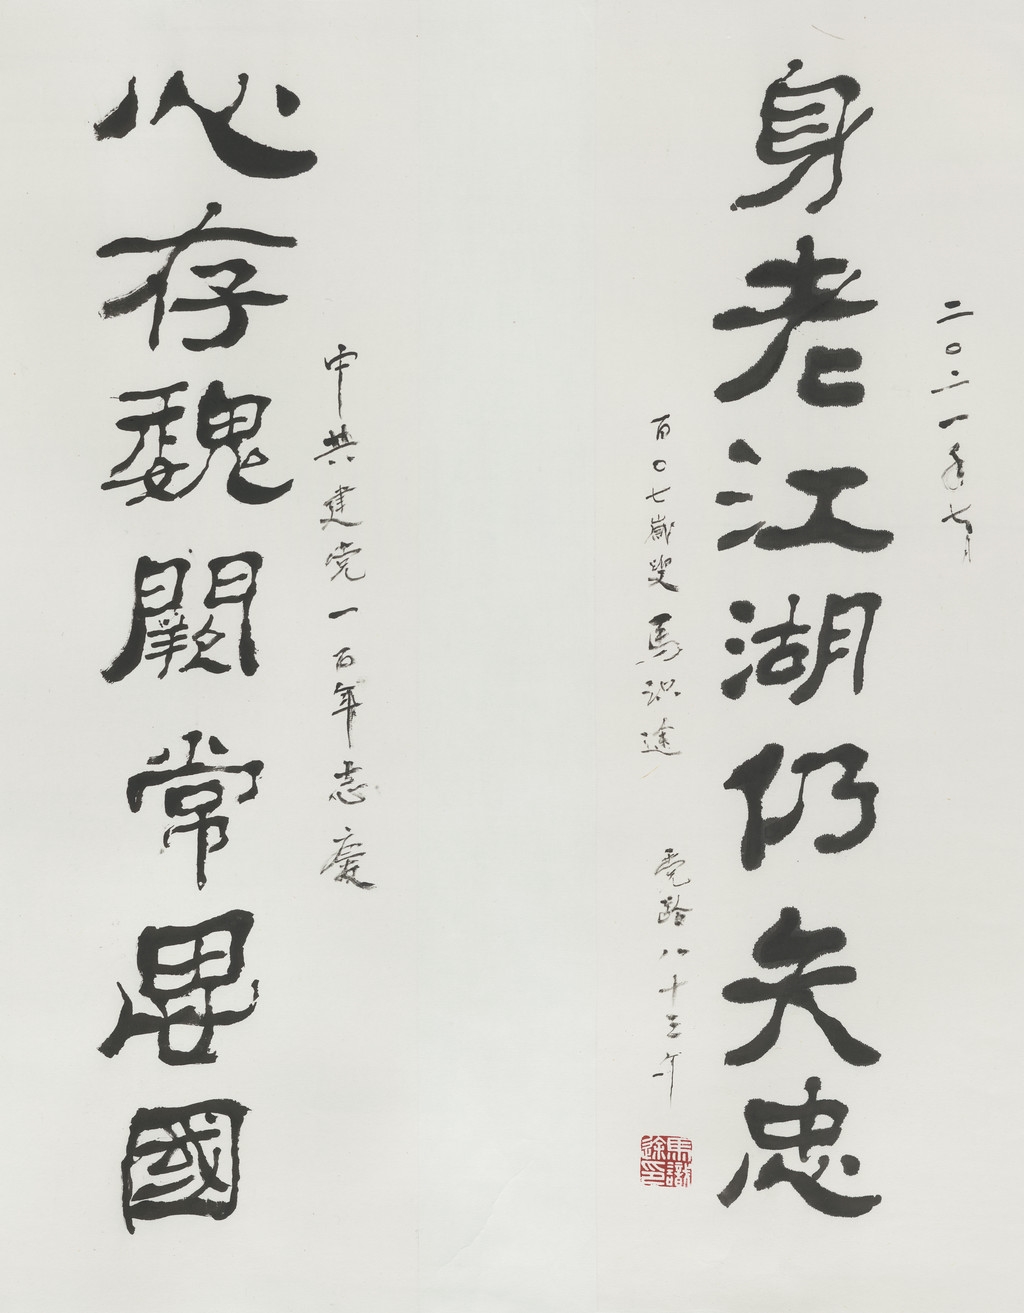 二〇二一年七月
身老江湖仍矢忠
百〇七歲叟馬识途 党齡八十三年
馬識途印
中共建党一百年志慶
心存魏闕常思國